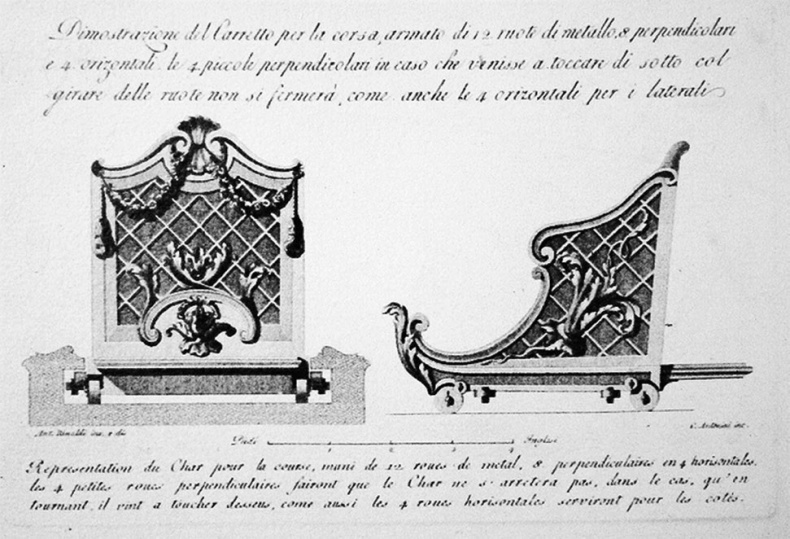 Dimostrazione del Carretto per la corsa, armato di 12 ruote di metallo, 8 perpendicolari
e 4 orizontali. le 4 piccole perpendicolari in caso che venisse a toccare di sotto col
girare delle ruote non si fermerà, come anche le 4 orizontali per i laterali
Ant. Rinaldi inv. e
C. Antonini inc.
Piedi 1 2 3 4 Inglesi
Representation du Char pour la course, muni de 12 roues de metal, 8 perpendiculaires en 4 horisontales.
les 4 petites roues perpendiculaires fairont que le Char ne s'arretera pas, dans le cas, qu'en
tournant, il vint a toucher dessous, come aussi les 4 roues horisontales serviront pour les cotés.